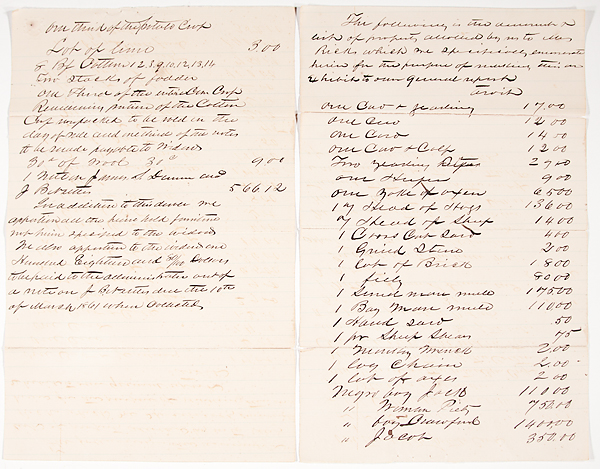 one third of the Potato Crop
Lot of lime 3.00
8 Bf Cotton 1 2 5 9, 10, 12, 13, 14
Two Stocks of fodder
one third of the entire Corn Crop
Remaining portion of the Cotton
Crop unpacked to be sold on the
day of sale and one third of the notes
to be made payable to Widow
30# of Wool 30c 9.00
1 Note on James S. Dunn and
J Battettes 566.12
In addition to this dower we
apportion all the
not herein specified to the widow
We also apportion to the widow one
Hundred Eighteen and Dollars
to be paid to the administrator out of
a note on J Battettes due the 10th
of March 1861 when Collected
The following is the account &
list of property allowed by us to Mrs
Ricks which we specifically enumerate
herein for the purpose of making this an
Exhibit to our General report
To wit
one Cow & yearling 17.00
one Cow 12.00
one Cow 14.00
one Cow & Calf 12.00
Two yearling 27.00
one Heifer 9.00
one Yoke of oxen 65.00
17 Head of Hogs 136.00
7 Head of Sheep 14.00
1 Cross Cut Saw 4.00
1 Grind Stone 2.00
1 Lot of Brick 18.00
1 filly 80.00
1 mare mule 175.00
1 Bay Mare mule 110.00
1 Hand saw .50
1 pr Sheep Shears 75
1 Monkey Wrench 2.00
1 log Chain 2.00
1 lot of axes 2.00
Negro boy Jack 1100
" Woman Piety 750.00
" boy Crawford 1400.00
" Jacob 350.00